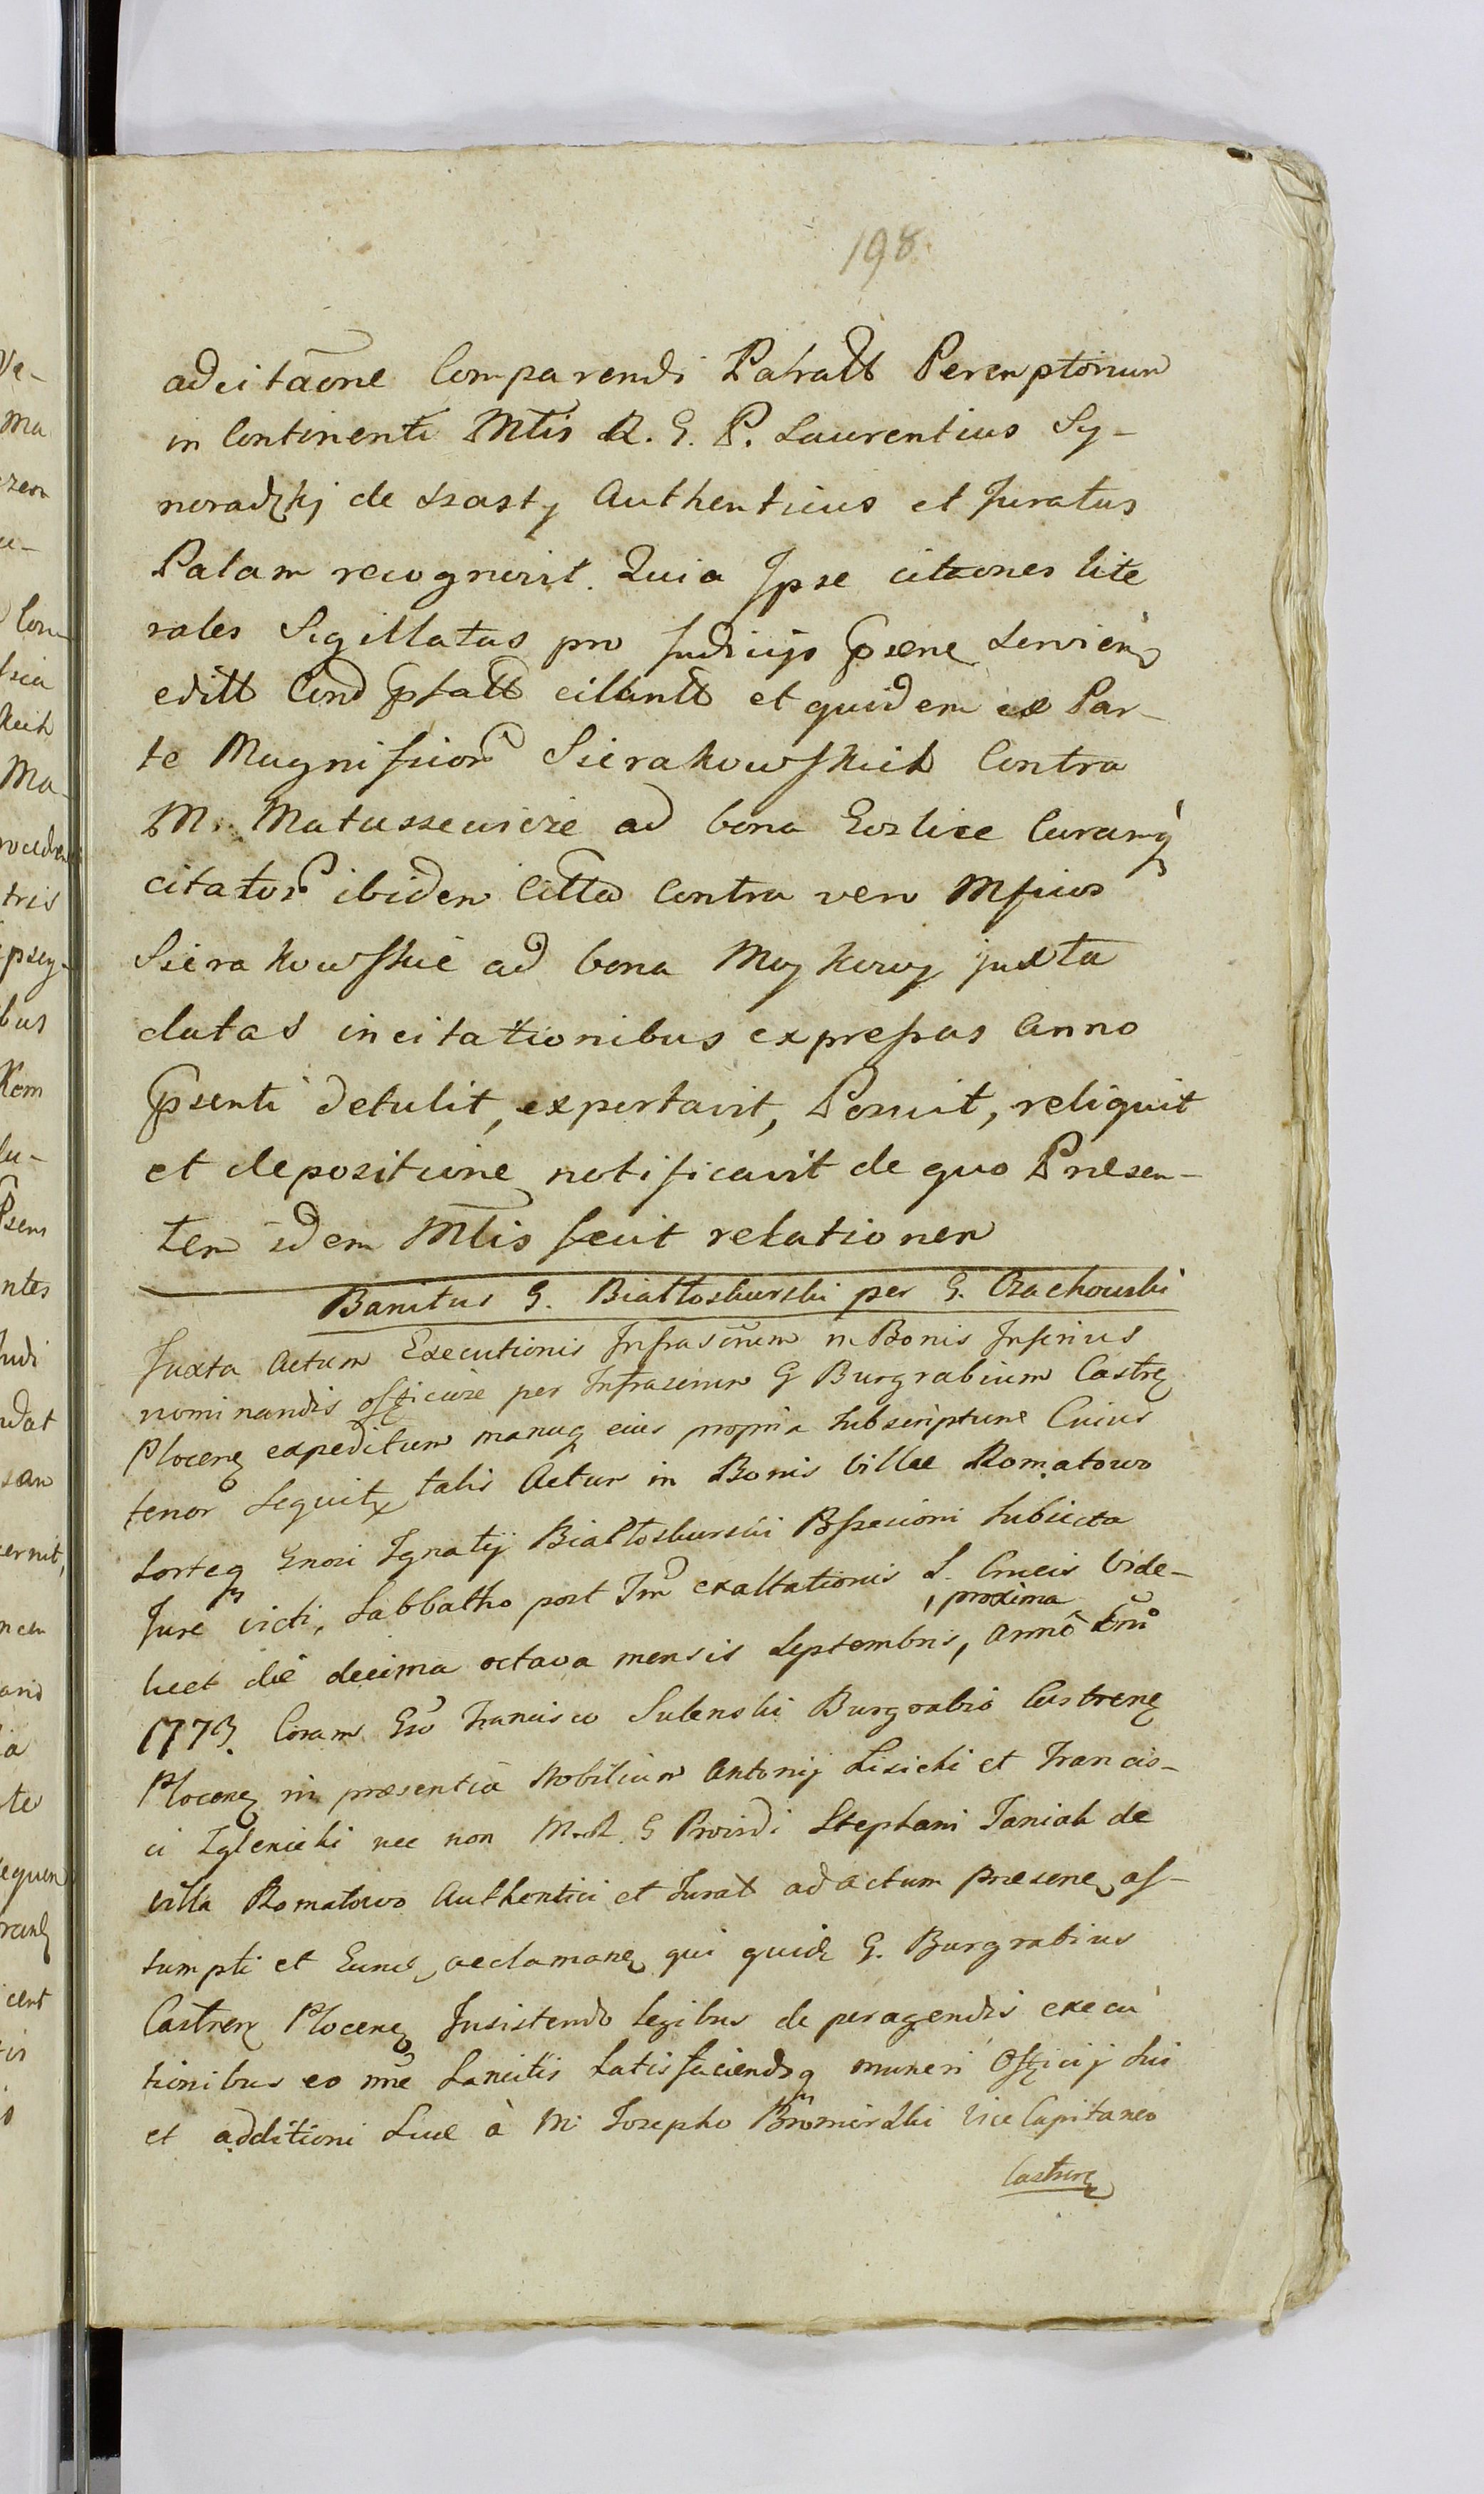 198
adcitãone Comparendi Patratt Peremptorium
in Continenti Mtis R. G. P. Laurentius Sy-
noradzkj de Szasty Authenticus et Juratus
Palam recognovit. Quia Ipse citaones lite
rales Sigillatas pro Judicijs psene servien
editt Cond pfatt citantt et quidem ex Par-
te Magnificor Sierakowskich Contra
M. Matuszewicze ad bona Gozlice Curamq
citator ibidem Citta Contra vero Mficos
Sierakowskie ad bona Mojkowy juxta
datas in citationibus expressas Anno
psenti detulit, exportavit, Posuit, reliquit
et depositione notificavit de quo Presen-
tem idem Mtis fecit relationem
Banitus G. Białłoskurski per G. Czachowski
Juxta Actum Executionis Infrascriem in Bonis Inferius
nominandis officiose per Infrascrum G Burgrabium Castre
Plocen expeditum manuq eius propria subscriptum Cuius
tenor sequit talis Actum in Bonis Villae Romatowo
sorteq Gnosi Ignatij Białłoskurski Pssesioni subiecta
Jure victi, Sabbatho post Fm exaltationis S. Crucis Vide-
, proxima
licet die decima octava mensis Septembris, Anno Dni
1773. Coram Gso Francisco Sulenski Burgrabio Castrene
Plocen in praesentia Nobilium Antonij Lisicki et Francis-
ci Zglenicki nec non M. R. G Providi Stephani Janiak de
villa Romatowo Authentici et Jurat ad actum praesene as-
sumpti et Eund aeclamane qui quid G. Burgrabius
Castren Plocene Insistendo legibus de peragendis execu
tionibus eo nne Sancitis satisfaciendoq muneri Officij sui
et additioni suae à M. Josepho Bromirski Vice Capitaneo
Castrene